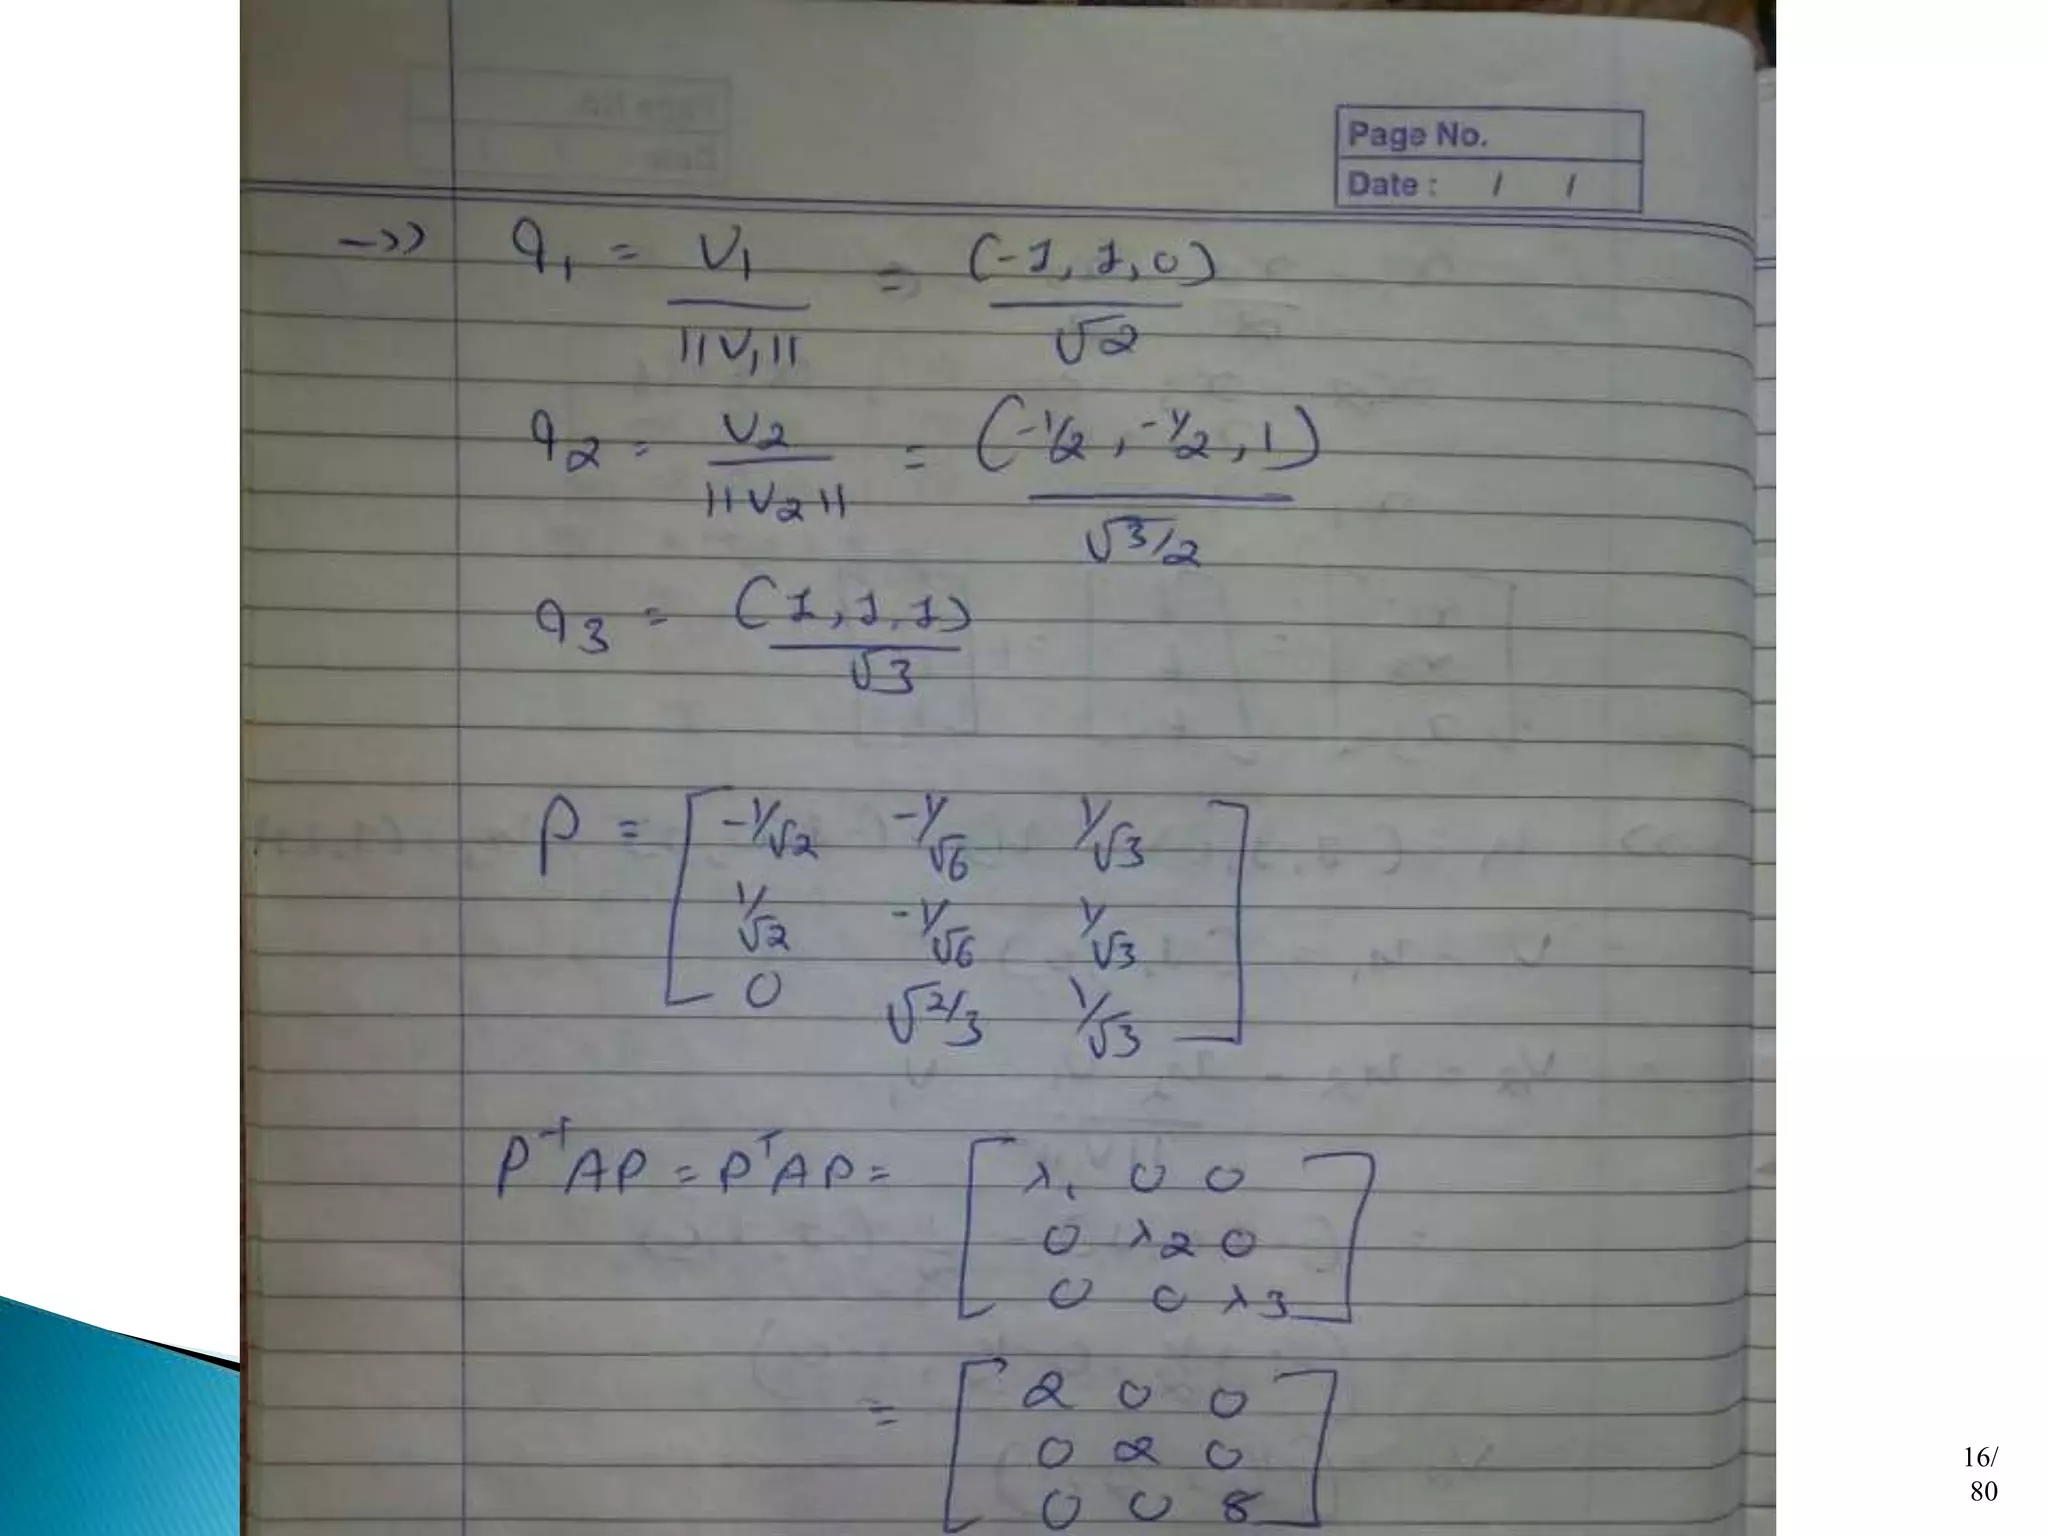 Page No.
Date : / /
->> q₁ = V₁ / ||V₁|| = (-1, 1, 0) / √2
q₂ = V₂ / ||V₂|| = (-1/2, -1/2, 1) / √3/2
q₃ = (1, 1, 1) / √3
P = [ -1/√2 -1/√6 1/√3
1/√2 -1/√6 1/√3
0 √2/3 1/√3 ]
P⁻¹AP = PᵀAP = [ λ₁ 0 0
0 λ₂ 0
0 0 λ₃ ]
= [ 2 0 0
0 2 0
0 0 8 ]
16/
80